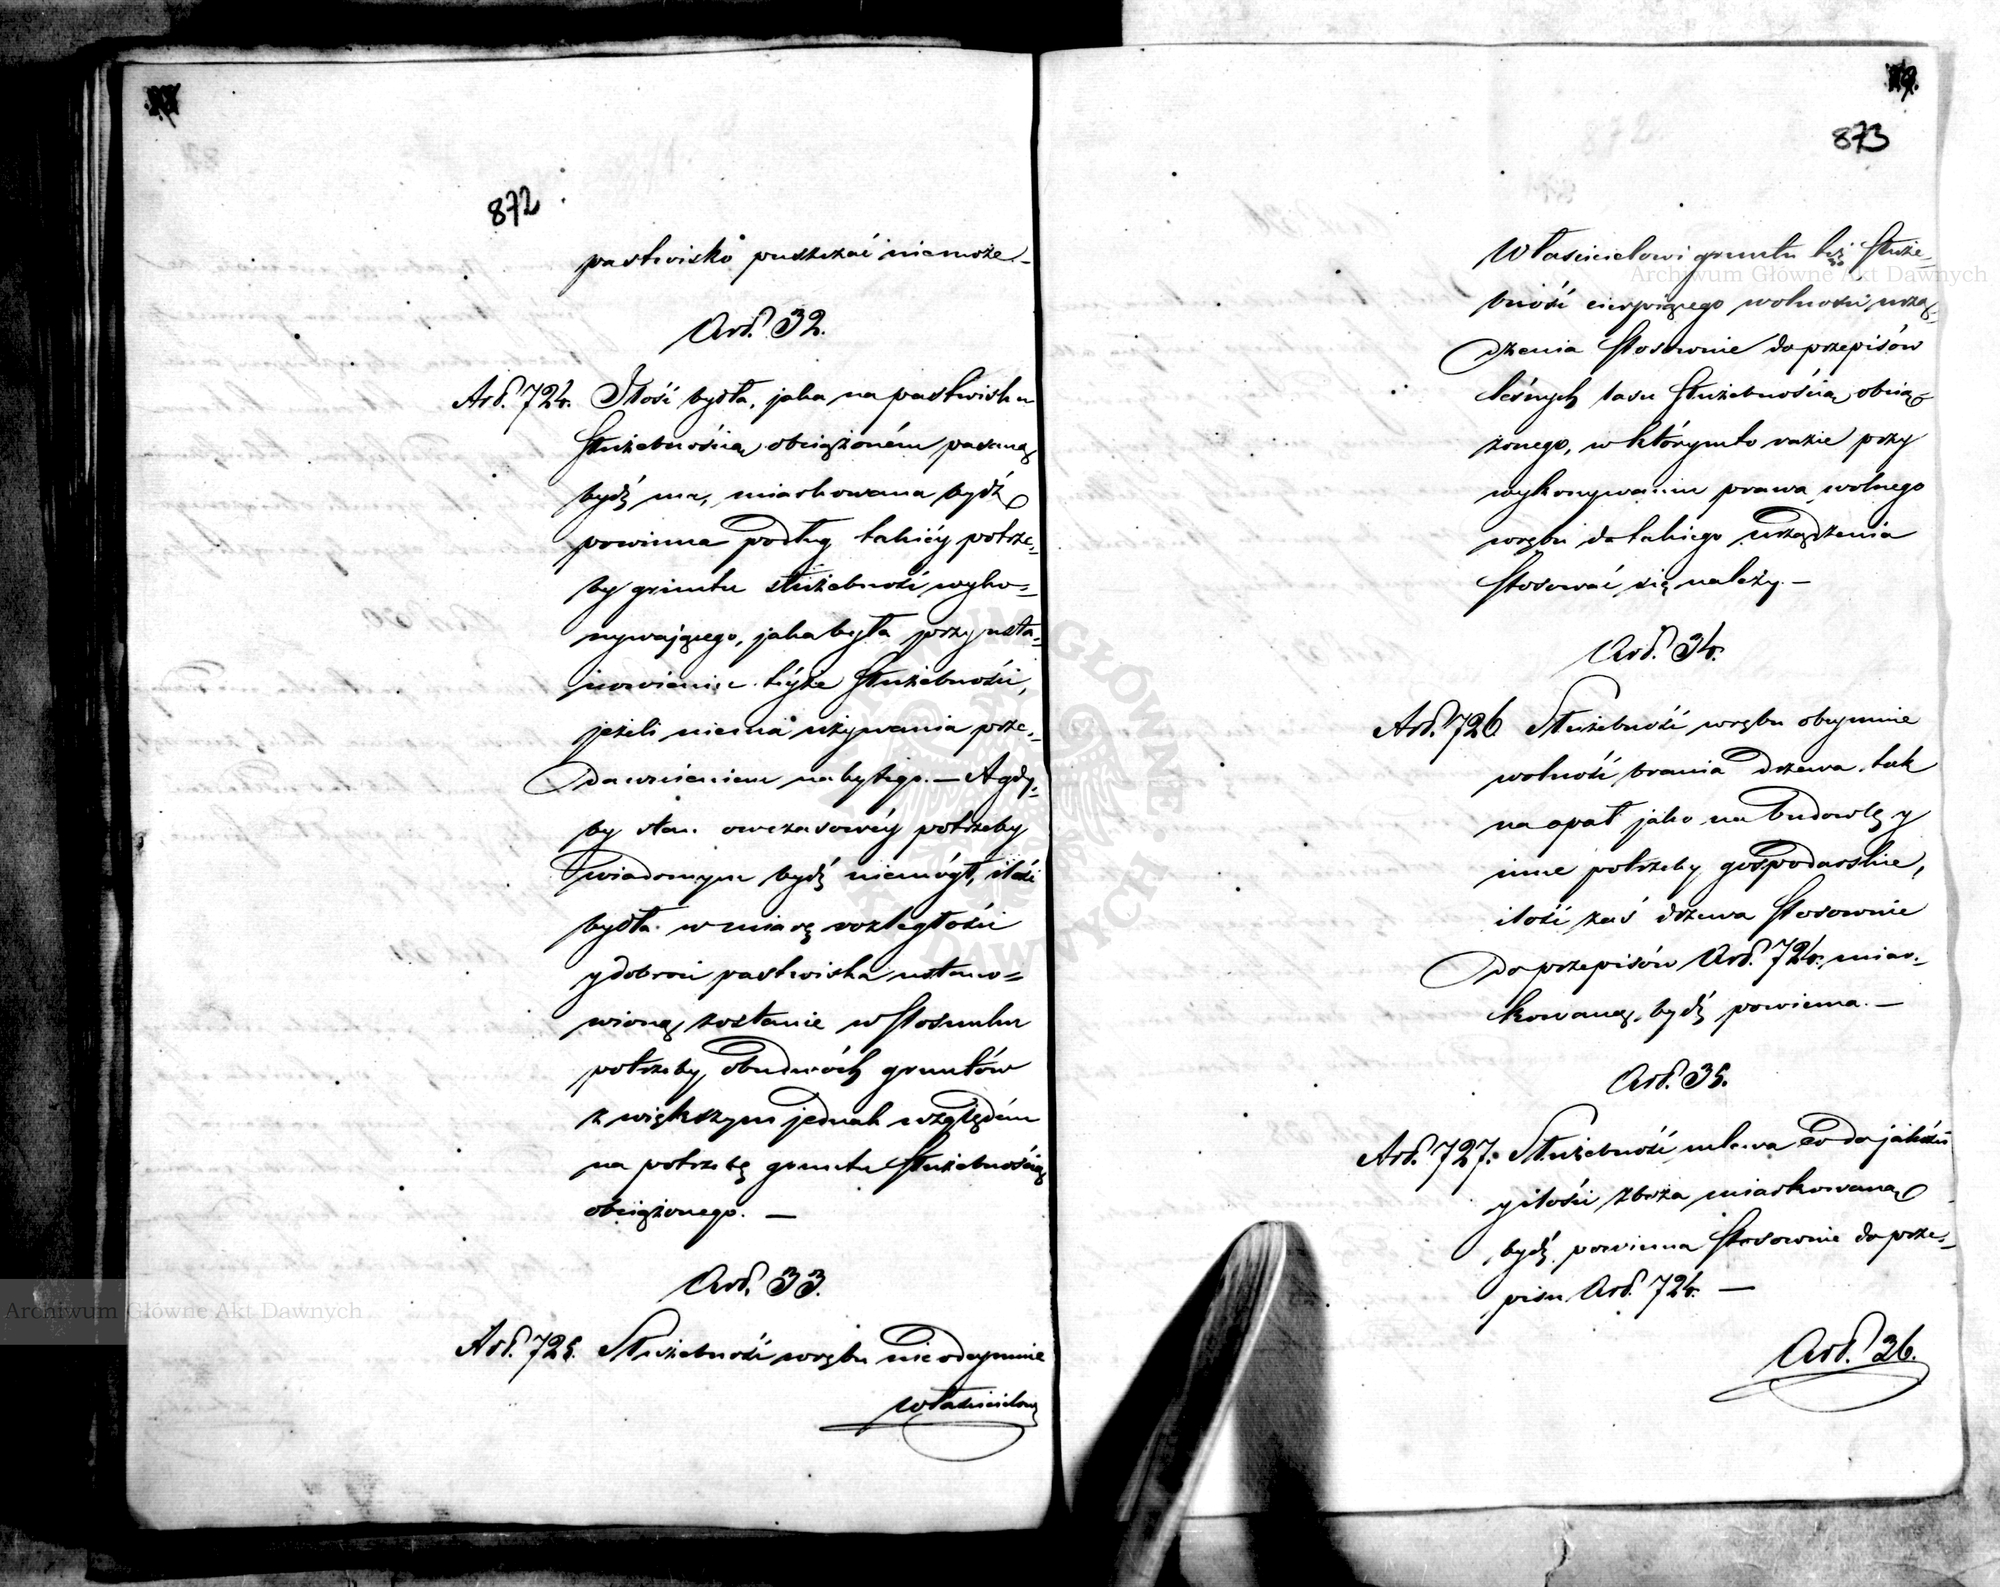 872
pastwisko puszczać niemoże. –
Art. 32.
Art. 724. Ilość bydła, jaka na pastwisku
służebnością obciążoném pasaną
bydź ma, miarkowana bydź
powinna podług takiéy potrze-
by gruntu służebność wyko-
nywającego, jaka była przy usta-
nowieniu téyże służebności,
jeżeli niema używania prze-
dawnieniem nabytego. – A gdy-
by stan owczasowéy potrzeby
wiadomym bydź niemógł, ilość
bydła w miarę rozległości
y dobroci pastwiska ustano-
wioną zostanie w stosunku
potrzeby obudwóch gruntów
z większym jednak względem
na potrzebę gruntu służebnością
obciążonego. –
Art. 33.
Art. 725. Służebność wrębu nie odeymuie
właścicielowi
873
Właścicielowi gruntu służe-
bność cierpiącego wolności urzą-
dzenia stosownie do przepisów
leśnych lasu służebnością obcią-
żonego, w którymto razie przy
wykonywaniu prawa wolnego
wrębu do takiego urządzenia
stosować się należy. –
Art. 34.
Art. 726 Służebność wrębu obeymuie
wolność brania drzewa tak
na opał jako na budowlę y
inne potrzeby gospodarskie,
ilość zaś drzewa stosownie
do przepisów Art. 724. miar-
kowaną bydź powinna. –
Art. 35.
Art. 727. Służebność mlewa co do jakości
y ilości zboża miarkowaną
bydź powinna stosownie do prze-
pisu Art. 724. –
Art. 36.
Archiwum Główne Akt Dawnych
Archiwum Główne Akt Dawnych